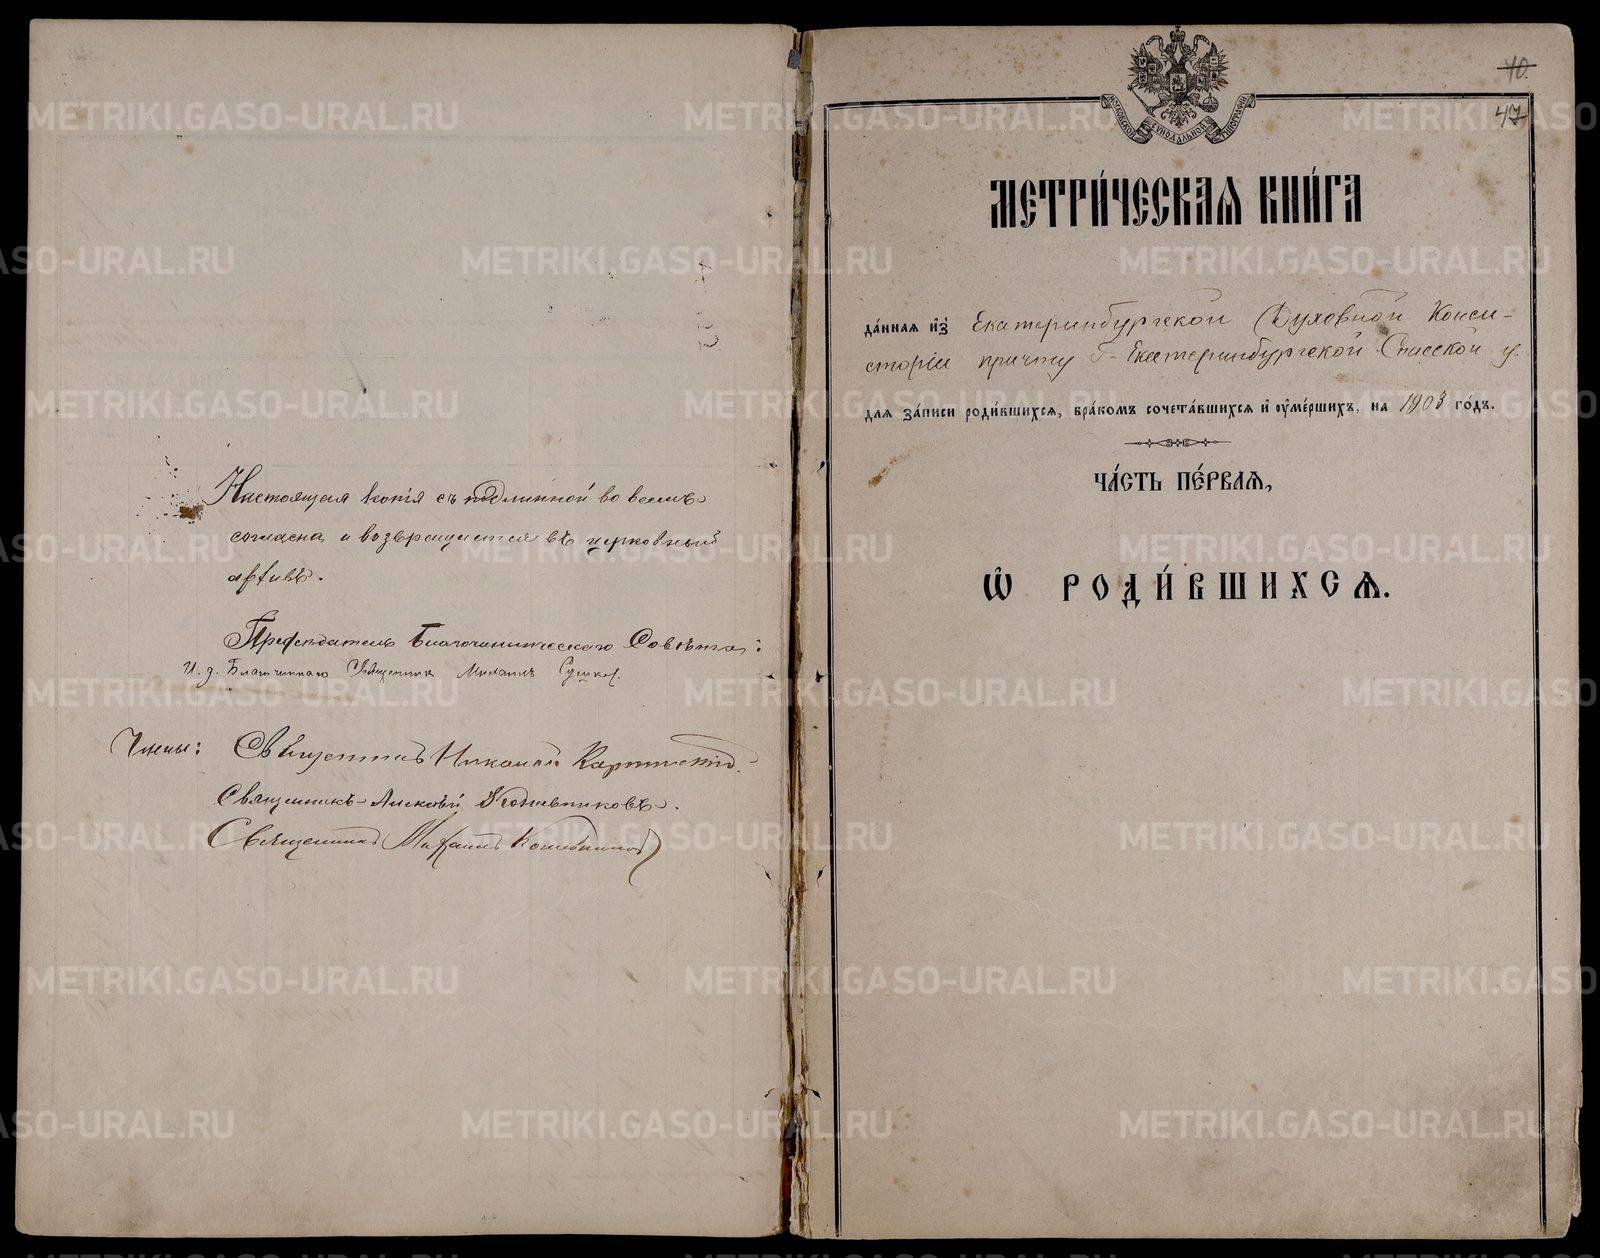 Настоящая копія съ подлинной во всемъ
согласна и возвращается въ церковный
архивъ.
Предсѣдатель Благочинническаго Совѣта:
И. д. Благочиннаго Священникъ Михаилъ
Члены: Священникъ Николай
Священникъ Алексѣй
Священникъ Михаилъ
40.
47
МОСКОВСКОЙ СѴНОДАЛЬНОЙ ТИПОГРАФІИ
МЕТРИ́ЧЕСКАѦ КНИ́ГА
да́ннаѧ и҆з̾ Екатеринбургской Духовной Конси-
сторіи причту г. Екатеринбургской Спасской ц.
длѧ за́писи роди́вшихсѧ, бра́комъ сочета́вшихсѧ и҆ ᲂу҆ме́ршихъ, на 1903 го́дъ.
ЧА́СТЬ ПЕ́РВАѦ,
Ѽ РОДИ́ВШИХСѦ.
METRIKI.GASO-URAL.RU